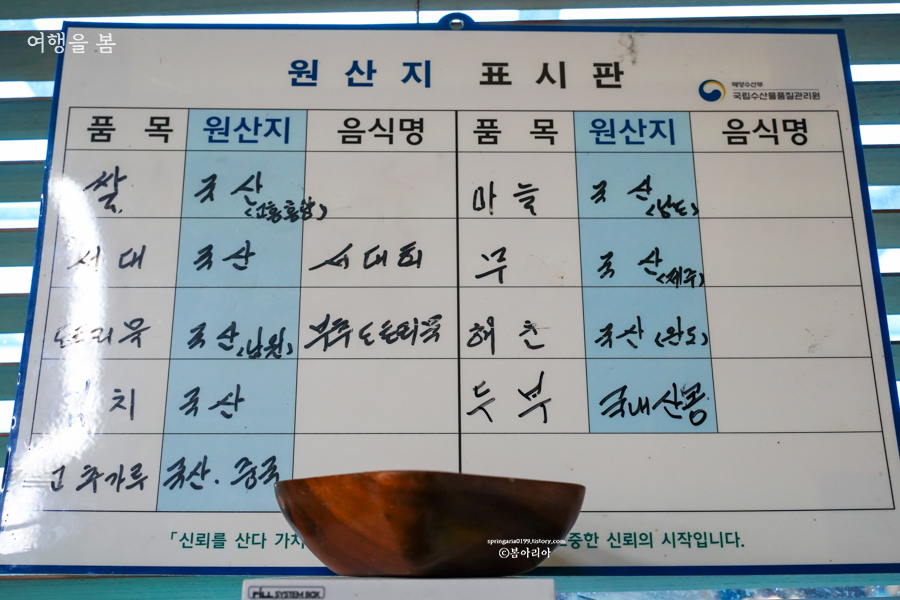 여행을 봄
원산지 표시판
해양수산부
국립수산물품질관리원
품 목 원산지 음식명 품 목 원산지 음식명
쌀 국산 마늘 국산 (남도)
서대 국산 서대회 무 국산 (제주)
도토리묵 국산 (남원) 부추도토리묵 해초 국산 (완도)
치 국산 두부 국내산콩
고추가루 국산. 중국
「신뢰를 산다 가치 중한 신뢰의 시작입니다.
springaria0199.tistory.com
©봄아리아
PILL SYSTEM BOX